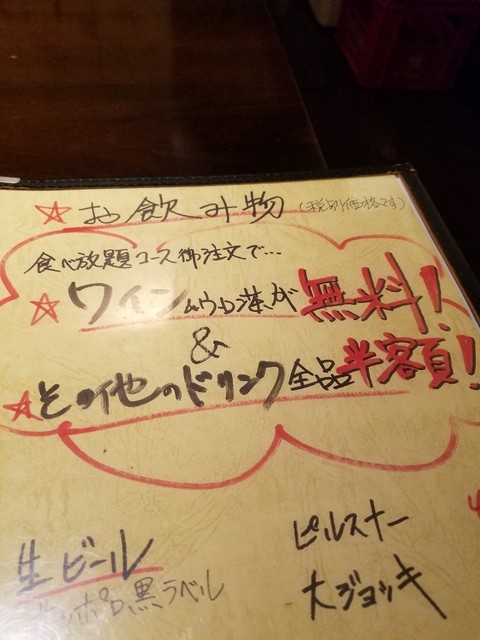 ☆お飲み物(税別価格です)
食べ放題コース御注文で…
☆ワイン&ウーロン茶が無料!
&
☆その他のドリンク全品半額!
生ビール
サッポロ黒ラベル
ピルスナー
大ジョッキ